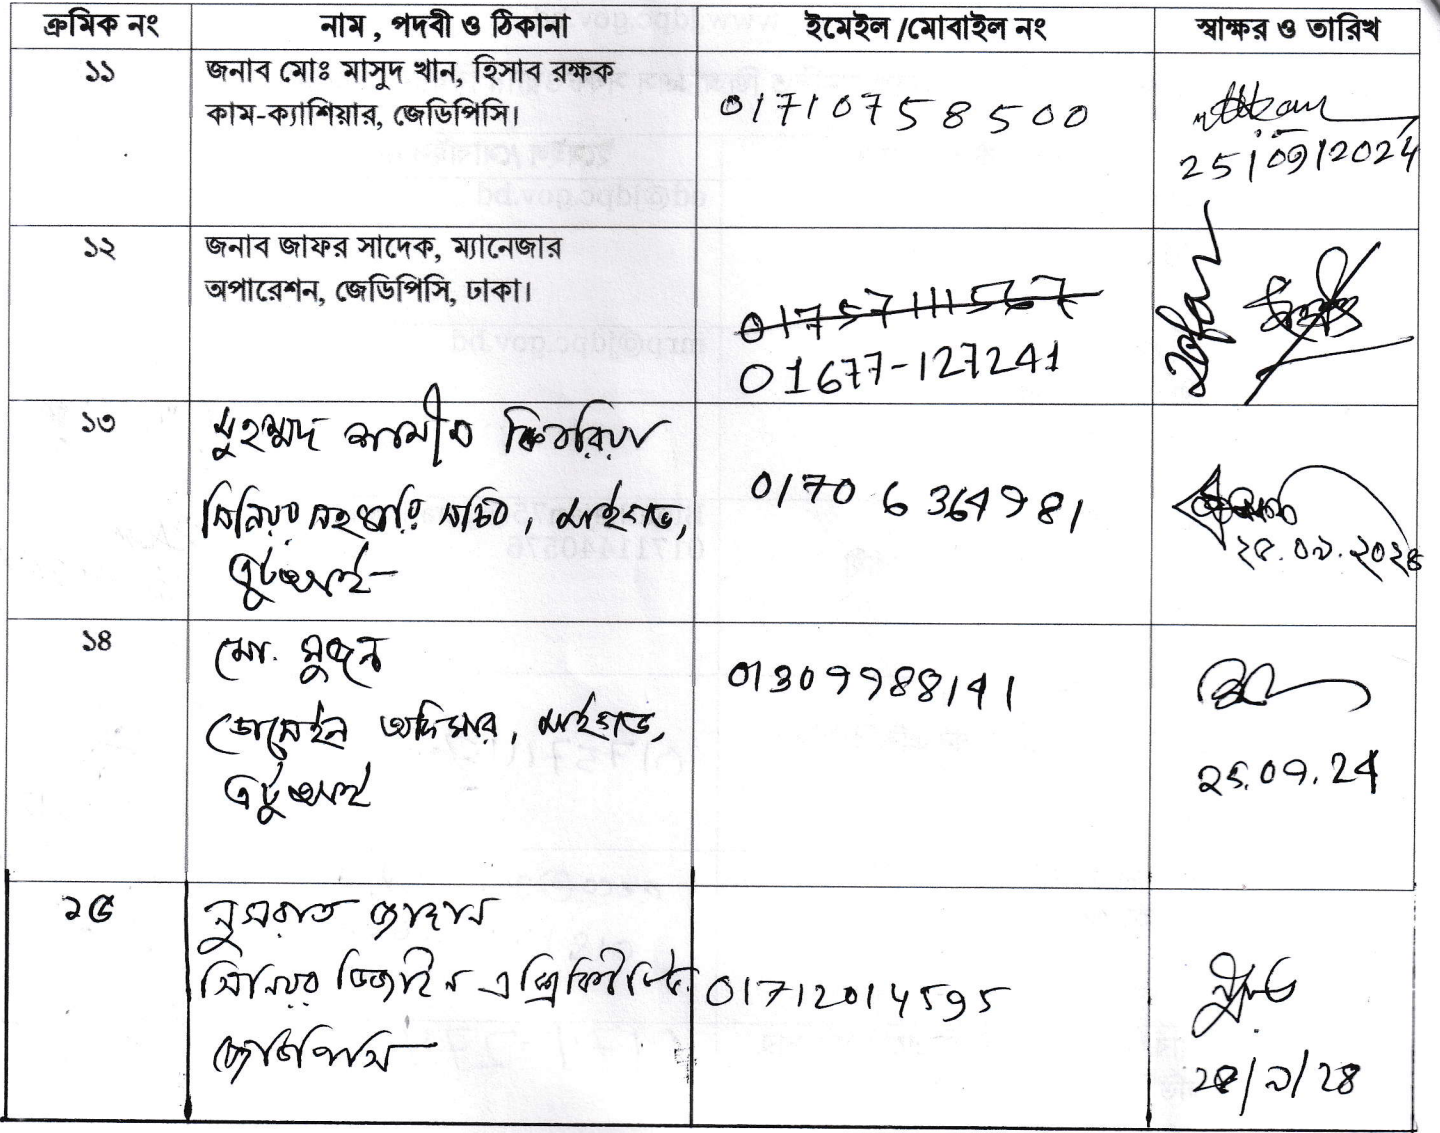 ক্রমিক নং নাম , পদবী ও ঠিকানা ইমেইল /মোবাইল নং স্বাক্ষর ও তারিখ
১১ জনাব মোঃ মাসুদ খান, হিসাব রক্ষক
কাম-ক্যাশিয়ার, জেডিপিসি। 01710758500
25/09/2024
১২ জনাব জাফর সাদেক, ম্যানেজার
অপারেশন, জেডিপিসি, ঢাকা।
01757111567
01677-127241
১৩ মুহম্মদ শামীম কিবরিয়া
সিনিয়র সহকারি সচিব, মাইগভ,
এটুআই
01706364981
২৫.০৯.২০২৪
১৪ মো. সুজন
ডোমেইন অফিসার, মাইগভ,
এটুআই
01309988141
25.09.24
১৫ নুসরাত জাহান
সিনিয়র ডিজাইন
জেডিপিসি
01712014595